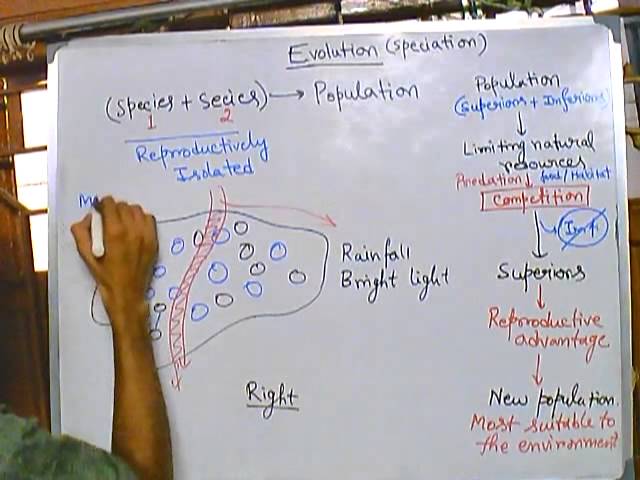 Evolution (speciation)
(Species + Secies) → Population
1 2
Reproductively
Isolated
M
Rainfall
Bright light
Right
Population
(Superiors + Inferiors)
Limiting natural
resources
Predation food/Habitat
Competition
Superiors
Reproductive
advantage
New population.
Most suitable to
the environment